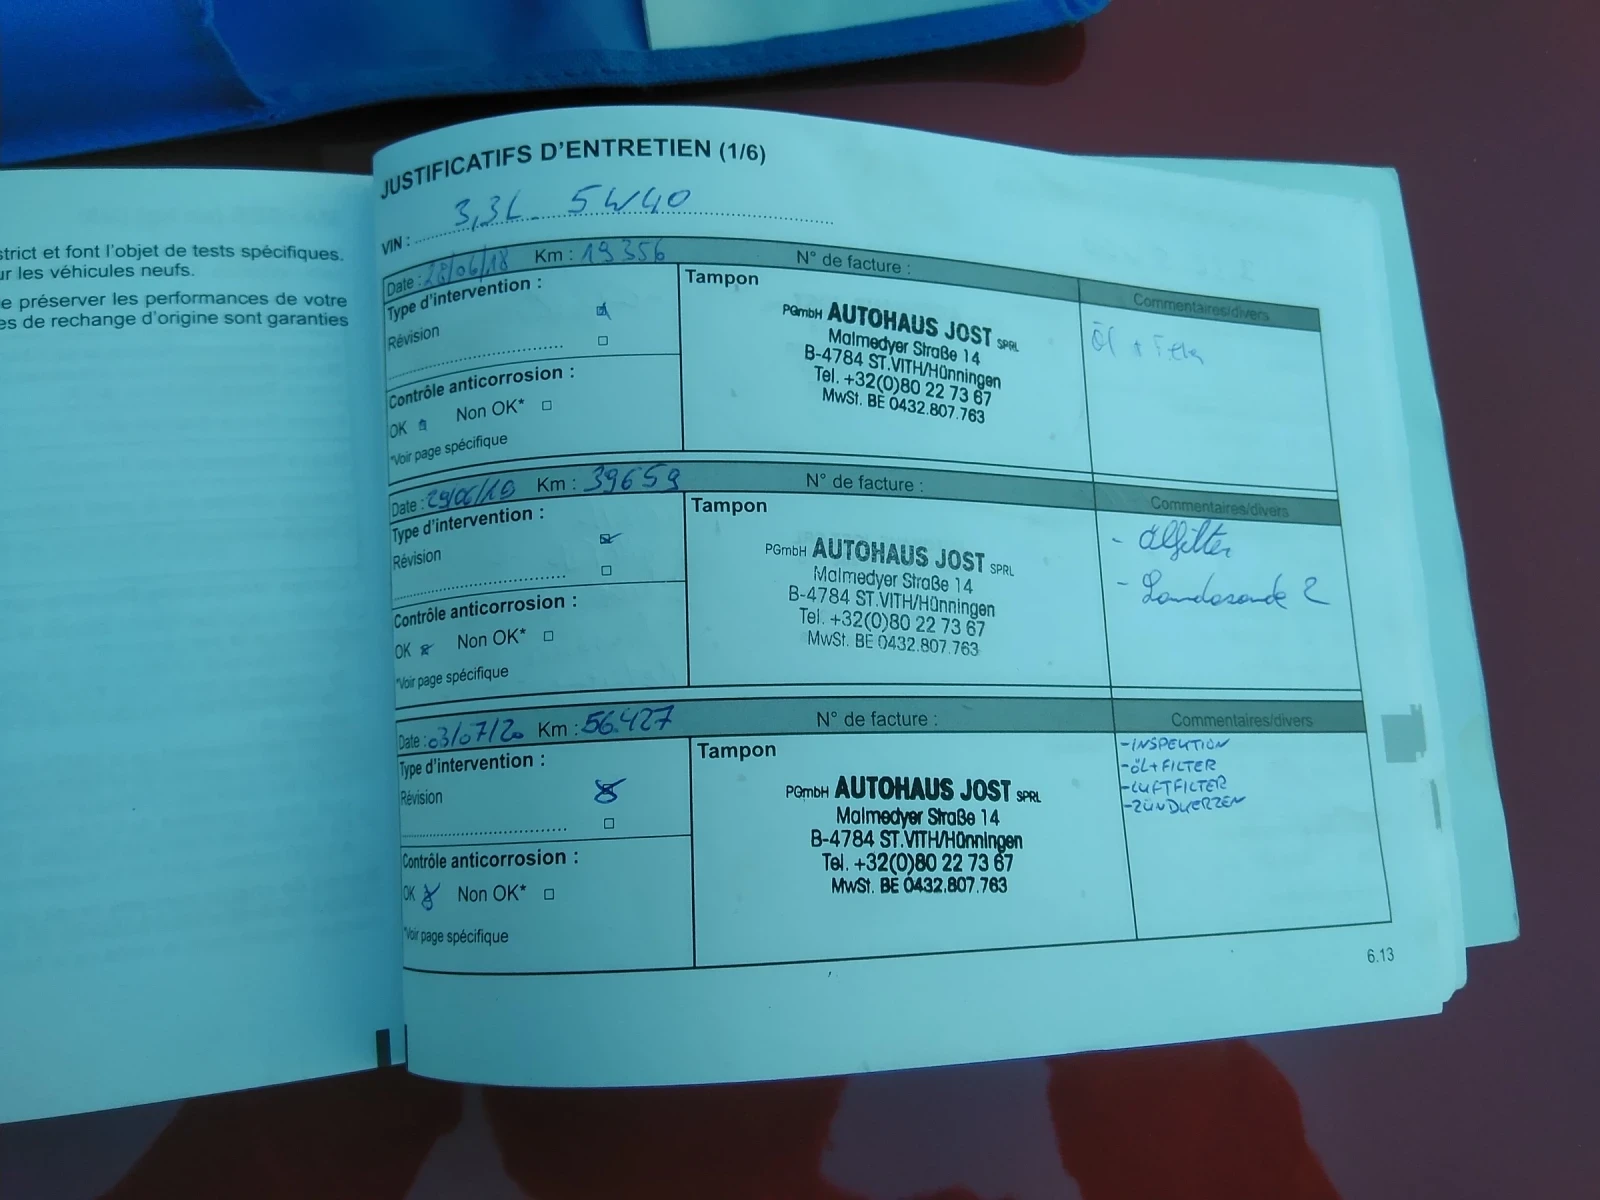 strict et font l'objet de tests spécifiques.
ur les véhicules neufs.
e préserver les performances de votre
es de rechange d'origine sont garanties
JUSTIFICATIFS D'ENTRETIEN (1/6)
VIN : 3,3L 5W40
Date : 28/06/18 Km : 19356 N° de facture :
Commentaires/divers
Type d'intervention :
Révision
Contrôle anticorrosion :
OK Non OK*
*Voir page spécifique
Tampon
PGmbH AUTOHAUS JOST SPRL
Malmedyer Straße 14
B-4784 ST.VITH/Hünningen
Tel. +32(0)80 22 73 67
MwSt. BE 0432.807.763
Öl +
Date : 29/06/19 Km : 39659 N° de facture :
Commentaires/divers
Type d'intervention :
Révision
Contrôle anticorrosion :
OK Non OK*
*Voir page spécifique
Tampon
PGmbH AUTOHAUS JOST SPRL
Malmedyer Straße 14
B-4784 ST.VITH/Hünningen
Tel. +32(0)80 22 73 67
MwSt. BE 0432.807.763
- Ölfilter
Date : 03/07/20 Km : 56.427 N° de facture :
Commentaires/divers
Type d'intervention :
Révision
Contrôle anticorrosion :
OK Non OK*
*Voir page spécifique
Tampon
PGmbH AUTOHAUS JOST SPRL
Malmedyer Straße 14
B-4784 ST.VITH/Hünningen
Tel. +32(0)80 22 73 67
MwSt. BE 0432.807.763
-INSPEKTION
-ÖL+FILTER
-LUFTFILTER
-ZÜNDKERZEN
6.13